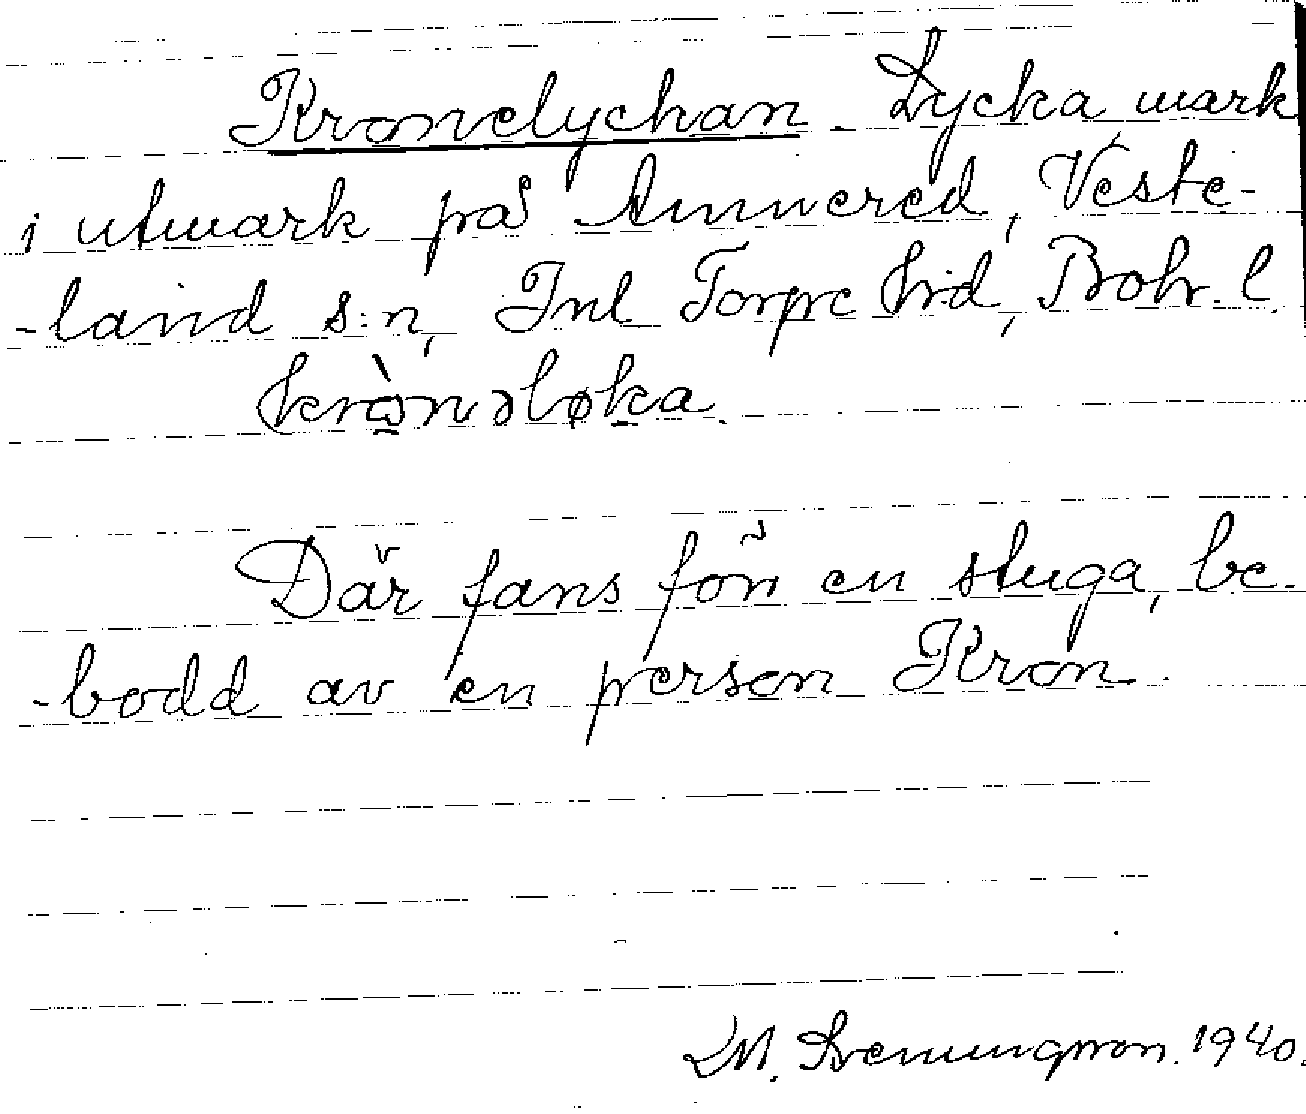 Kronelyckan. Lycka, mark
i utmark på Amnered, Veste-
-land s:n, Inl Torpe hrd, Boh. l.
krὰnəløka.
Där fans förr en stuga, be-
-bodd av en person Kron.
1940.